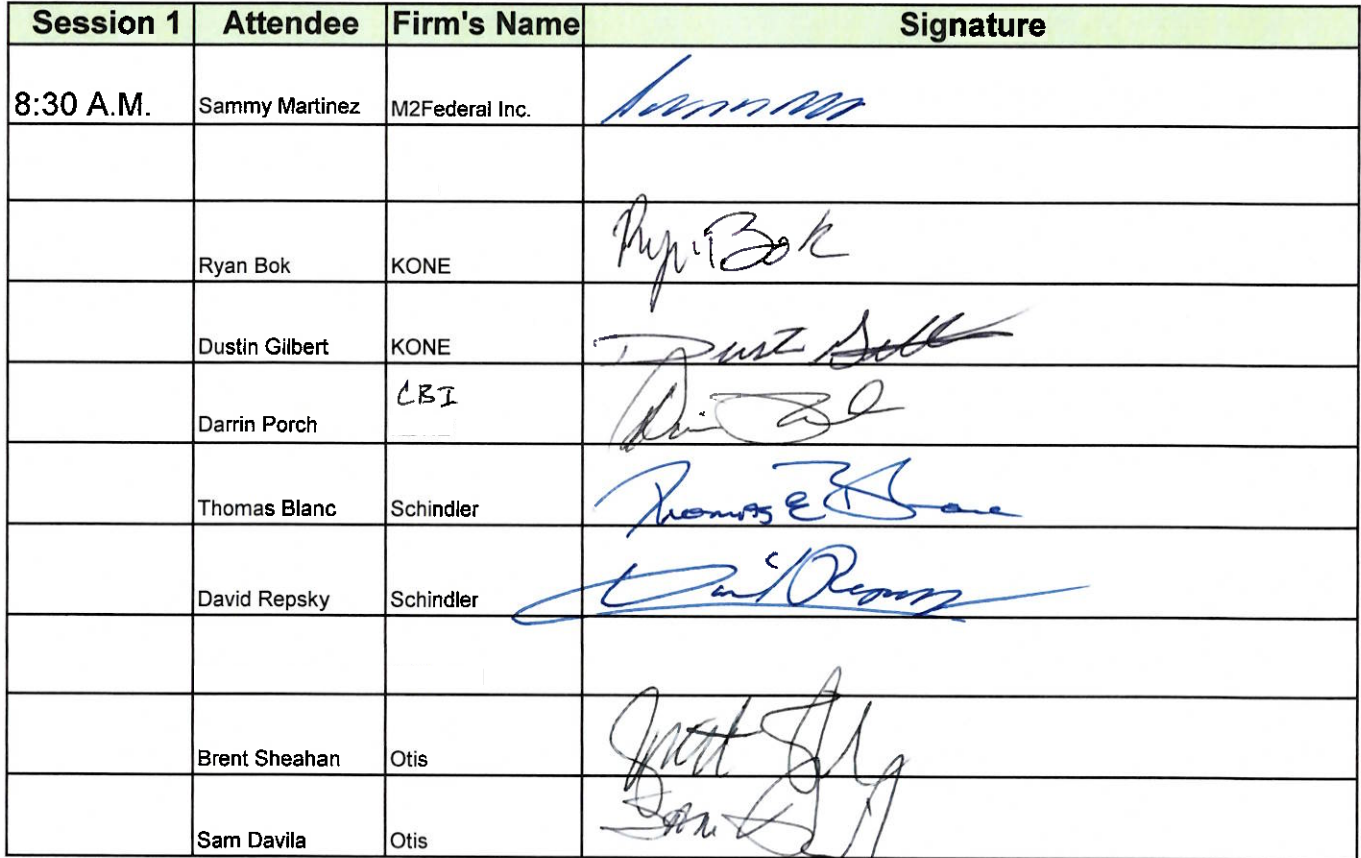 Session 1 Attendee Firm's Name Signature
8:30 A.M. Sammy Martinez M2Federal Inc.
Ryan Bok KONE Ryan Bok
Dustin Gilbert KONE
CBI
Darrin Porch
Thomas Blanc Schindler Thomas E Blanc
David Repsky Schindler
Brent Sheahan Otis
Sam Davila Otis